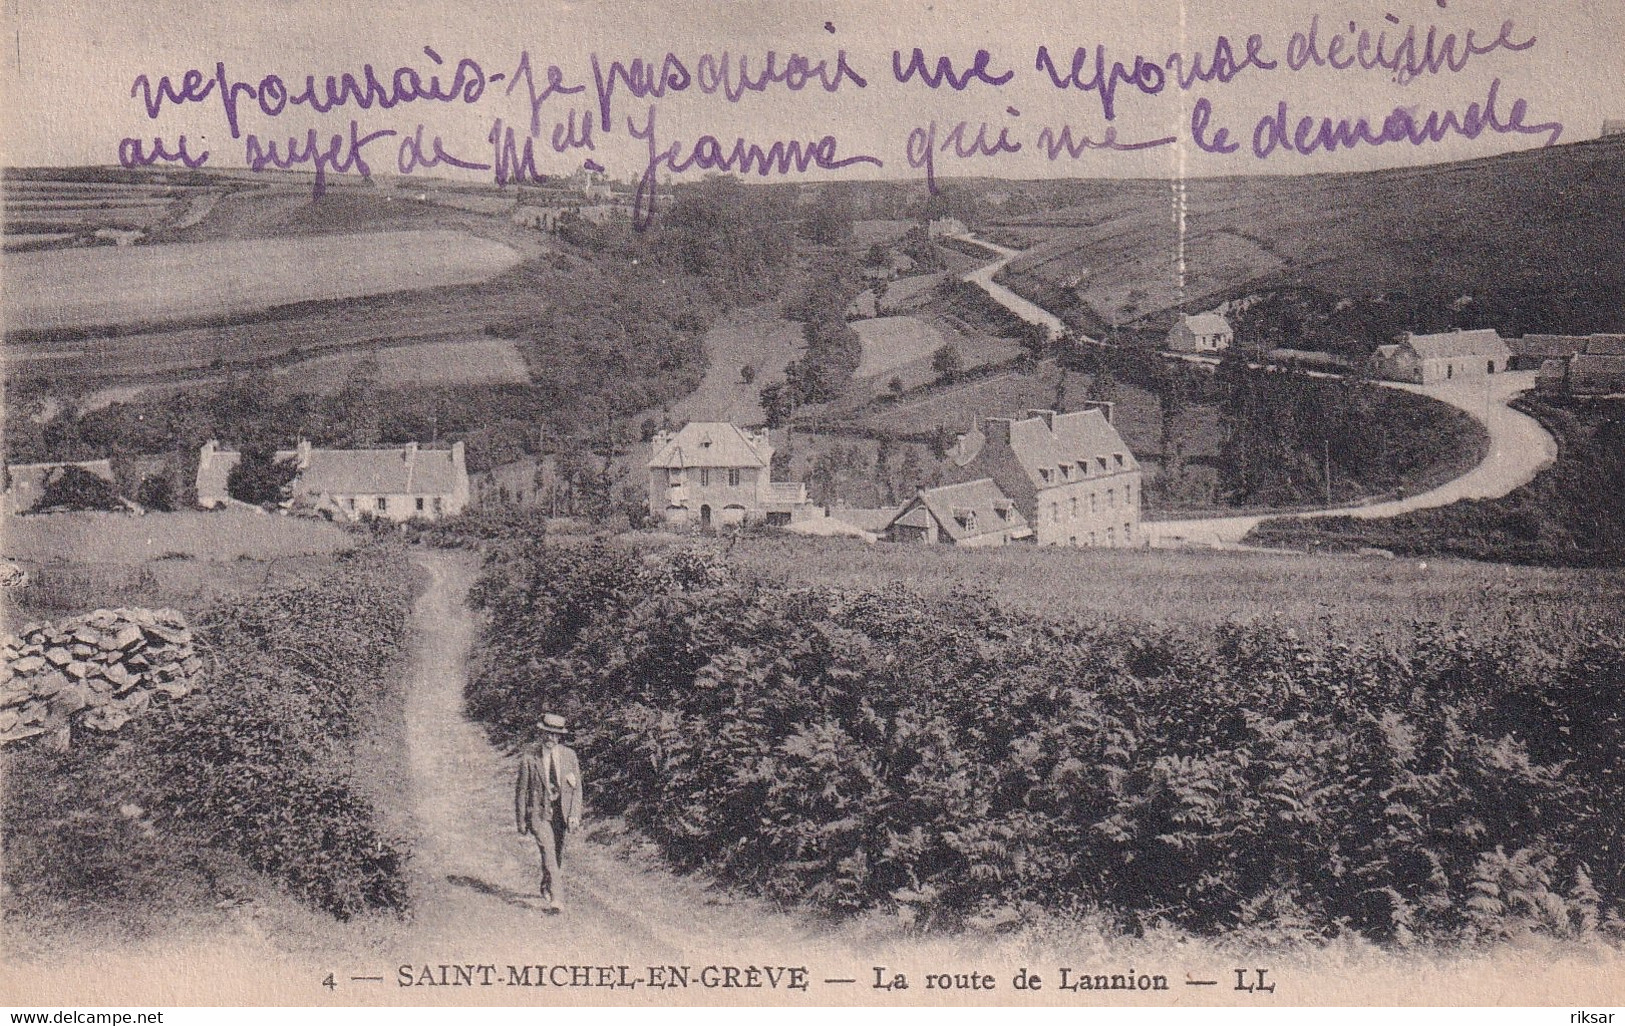 ne pourrais-je pas avoir une reponse décisive
au sujet de Mdlle Jeanne qui me le demande,
4 — SAINT-MICHEL-EN-GRÈVE — La route de Lannion — LL
www.delcampe.net
riksar